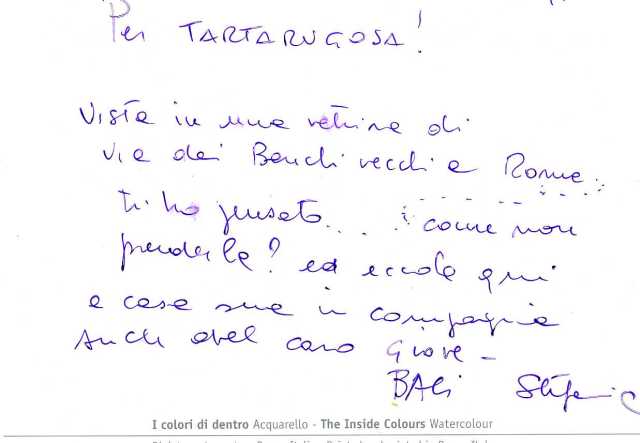 Per TARTARUGOSA!
Vista in una vetrina di
via dei Banchi vecchi a Roma
ti ho pensato.... come non
prenderla? ed eccola qui
a casa sua in compagnia
Anche del caro Giove -
BACI
I colori di dentro Acquarello - The Inside Colours Watercolour